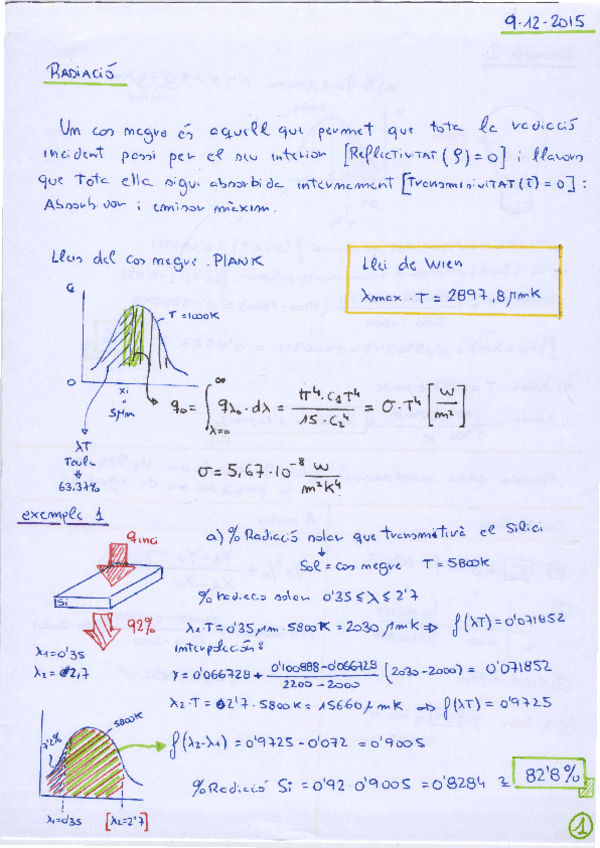 9-12-2015
RADIACIÓ
Un cos negre és aquell que permet que tota la radiació
incident passi per el seu interior [Reflectivitat (ρ)=0] i llavors
que tota ella sigui absorbida internament [Transmisivitat (τ)=0]:
Absorbidor i emisor màxim.
Lleis del cos negre. PLANK
Llei de Wien
λmax · T = 2897,8 μmK
T=1000K
0
xi
5μm
q₀ = ∫λ=0^∞ qλ₀ · dλ = π⁴·C₁T⁴ / 15·C₂⁴ = σ·T⁴ [W/m²]
λT
Taula
63.37%
σ = 5,67·10⁻⁸ W/m²K⁴
exemple 1
a) % Radiació solar que transmetirà el Silici
qinci
Sol = cos negre T = 5800K
Si
92%
% radiació solar 0'35 ≤ λ ≤ 2'7
λ₁=0'35
λ₂=2,7
λ₁·T = 0'35 μm · 5800K = 2030 μmK ⇒ f(λT) 0'071852
interpolació:
Y = 0'066728 + 0'100888-0'066728 / 2200-2000 (2030-2000) = 0'071852
λ₂·T = 2'7 · 5800K = 15660 μmK ⇒ f(λT) = 0'9725
5800K
7'2%
f(λ₂-λ₁) = 0'9725 - 0'072 = 0'9005
% Radiació Si = 0'92 · 0'9005 = 0'8284 ≅ 82'8%
λ₁=0'35
[λ₂=2'7]
1